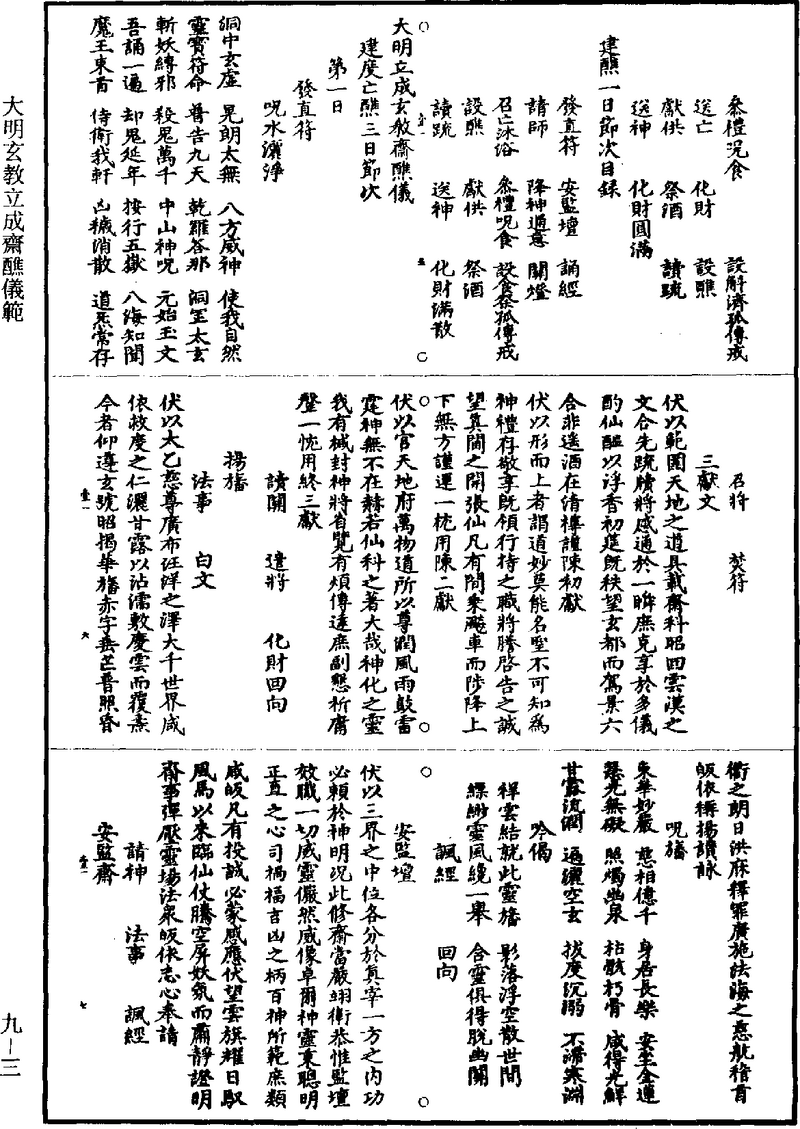 大明玄教立成齋醮儀範
九—三
參禮況食　設解濟孤傳戒
送亡　化財　設醮
獻供　祭酒　讀疏
送神　化財圓滿
建醮一日節次目錄
發直符　安監壇　誦經
請師　降神適意　關燈
召亡沐浴　參禮呪食　設食登孤傳戒
設醮　獻供　祭酒
讀疏　送神　化財滿散
大明立成玄教齋醮儀
建度亡醮三日節次
第一日
發直符
呪水灑淨
洞中玄虛　晃朗太無　八方威神　使我自然
靈寶符命　普告九天　乾羅答那　洞罡太玄
斬妖縛邪　殺鬼萬千　中山神呪　元始玉文
吾誦一遍　却鬼延年　按行五嶽　八海知聞
魔王束首　侍衛我軒　凶穢消散　道炁常存
召將　焚符
三獻文
伏以範圍天地之道具載齋科昭回雲漢之
文合先疏牘將感通於一眸庶克享於多儀
酌仙醖以浮香初筵既秩望玄都而駕景六
合非遥酒在清樽謹陳初獻
伏以形而上者謂道妙莫能名聖不可知為
神禮存敬享既領行持之職將謄啓告之誠
望箕閒之開張仙凡有間乘飈車而陟降上
下無方謹運一忱用陳二獻
伏以官天地府萬物道所以尊潤風雨鼓雷
霆神無不在赫若仙科之著大哉神化之靈
我有械封神將省覽有煩傳達庶副懇祈庸
罄一忱用終三獻
讀關　遣將　化財回向
揚旛
法事　白文
伏以太乙慈尊廣布汪洋之澤大千世界咸
依救度之仁灑甘露以沾濡敷慶雲而覆燾
今者仰遵玄號昭揭華旛赤字垂芒普照昏
衢之朗日洪庥釋罪廣施法海之慈航稽首
皈依稱揚讚詠
呪旛
東華妙嚴　慈相億千　身居長樂　安坐金蓮
慧光無礙　照燭幽泉　枯骸朽骨　咸得光鮮
甘露流潤　遍灑空玄　拔度沉溺　不滯寒淵
吟偈
祥雲結就此靈旛　影落浮空散世間
縹緲靈風繞一舉　含靈俱得脫幽關
諷經　回向
安監壇
伏以三界之中位各分於真宰一方之内功
必頼於神明况此修齋當嚴翊衛恭惟監壇
效職一切威靈儼然威像卓爾神靈秉聰明
正直之心司禍福吉凶之柄百神所範庶類
咸皈凡有投誠必蒙感應伏望雲旗耀日馭
風馬以來臨仙仗騰空屏妖氛而肅靜證明
齋事彈壓靈場法衆皈依志心奉請
請神　法事　諷經
安監齋